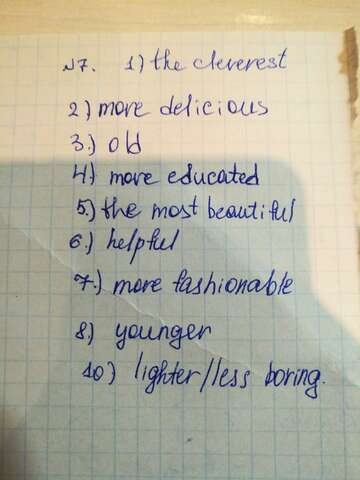 №7. 1) the cleverest
2) more delicious
3.) old
4.) more educated
5.) the most beautiful
6.) helpful
7.) more fashionable
8.) younger
10) lighter/less boring.